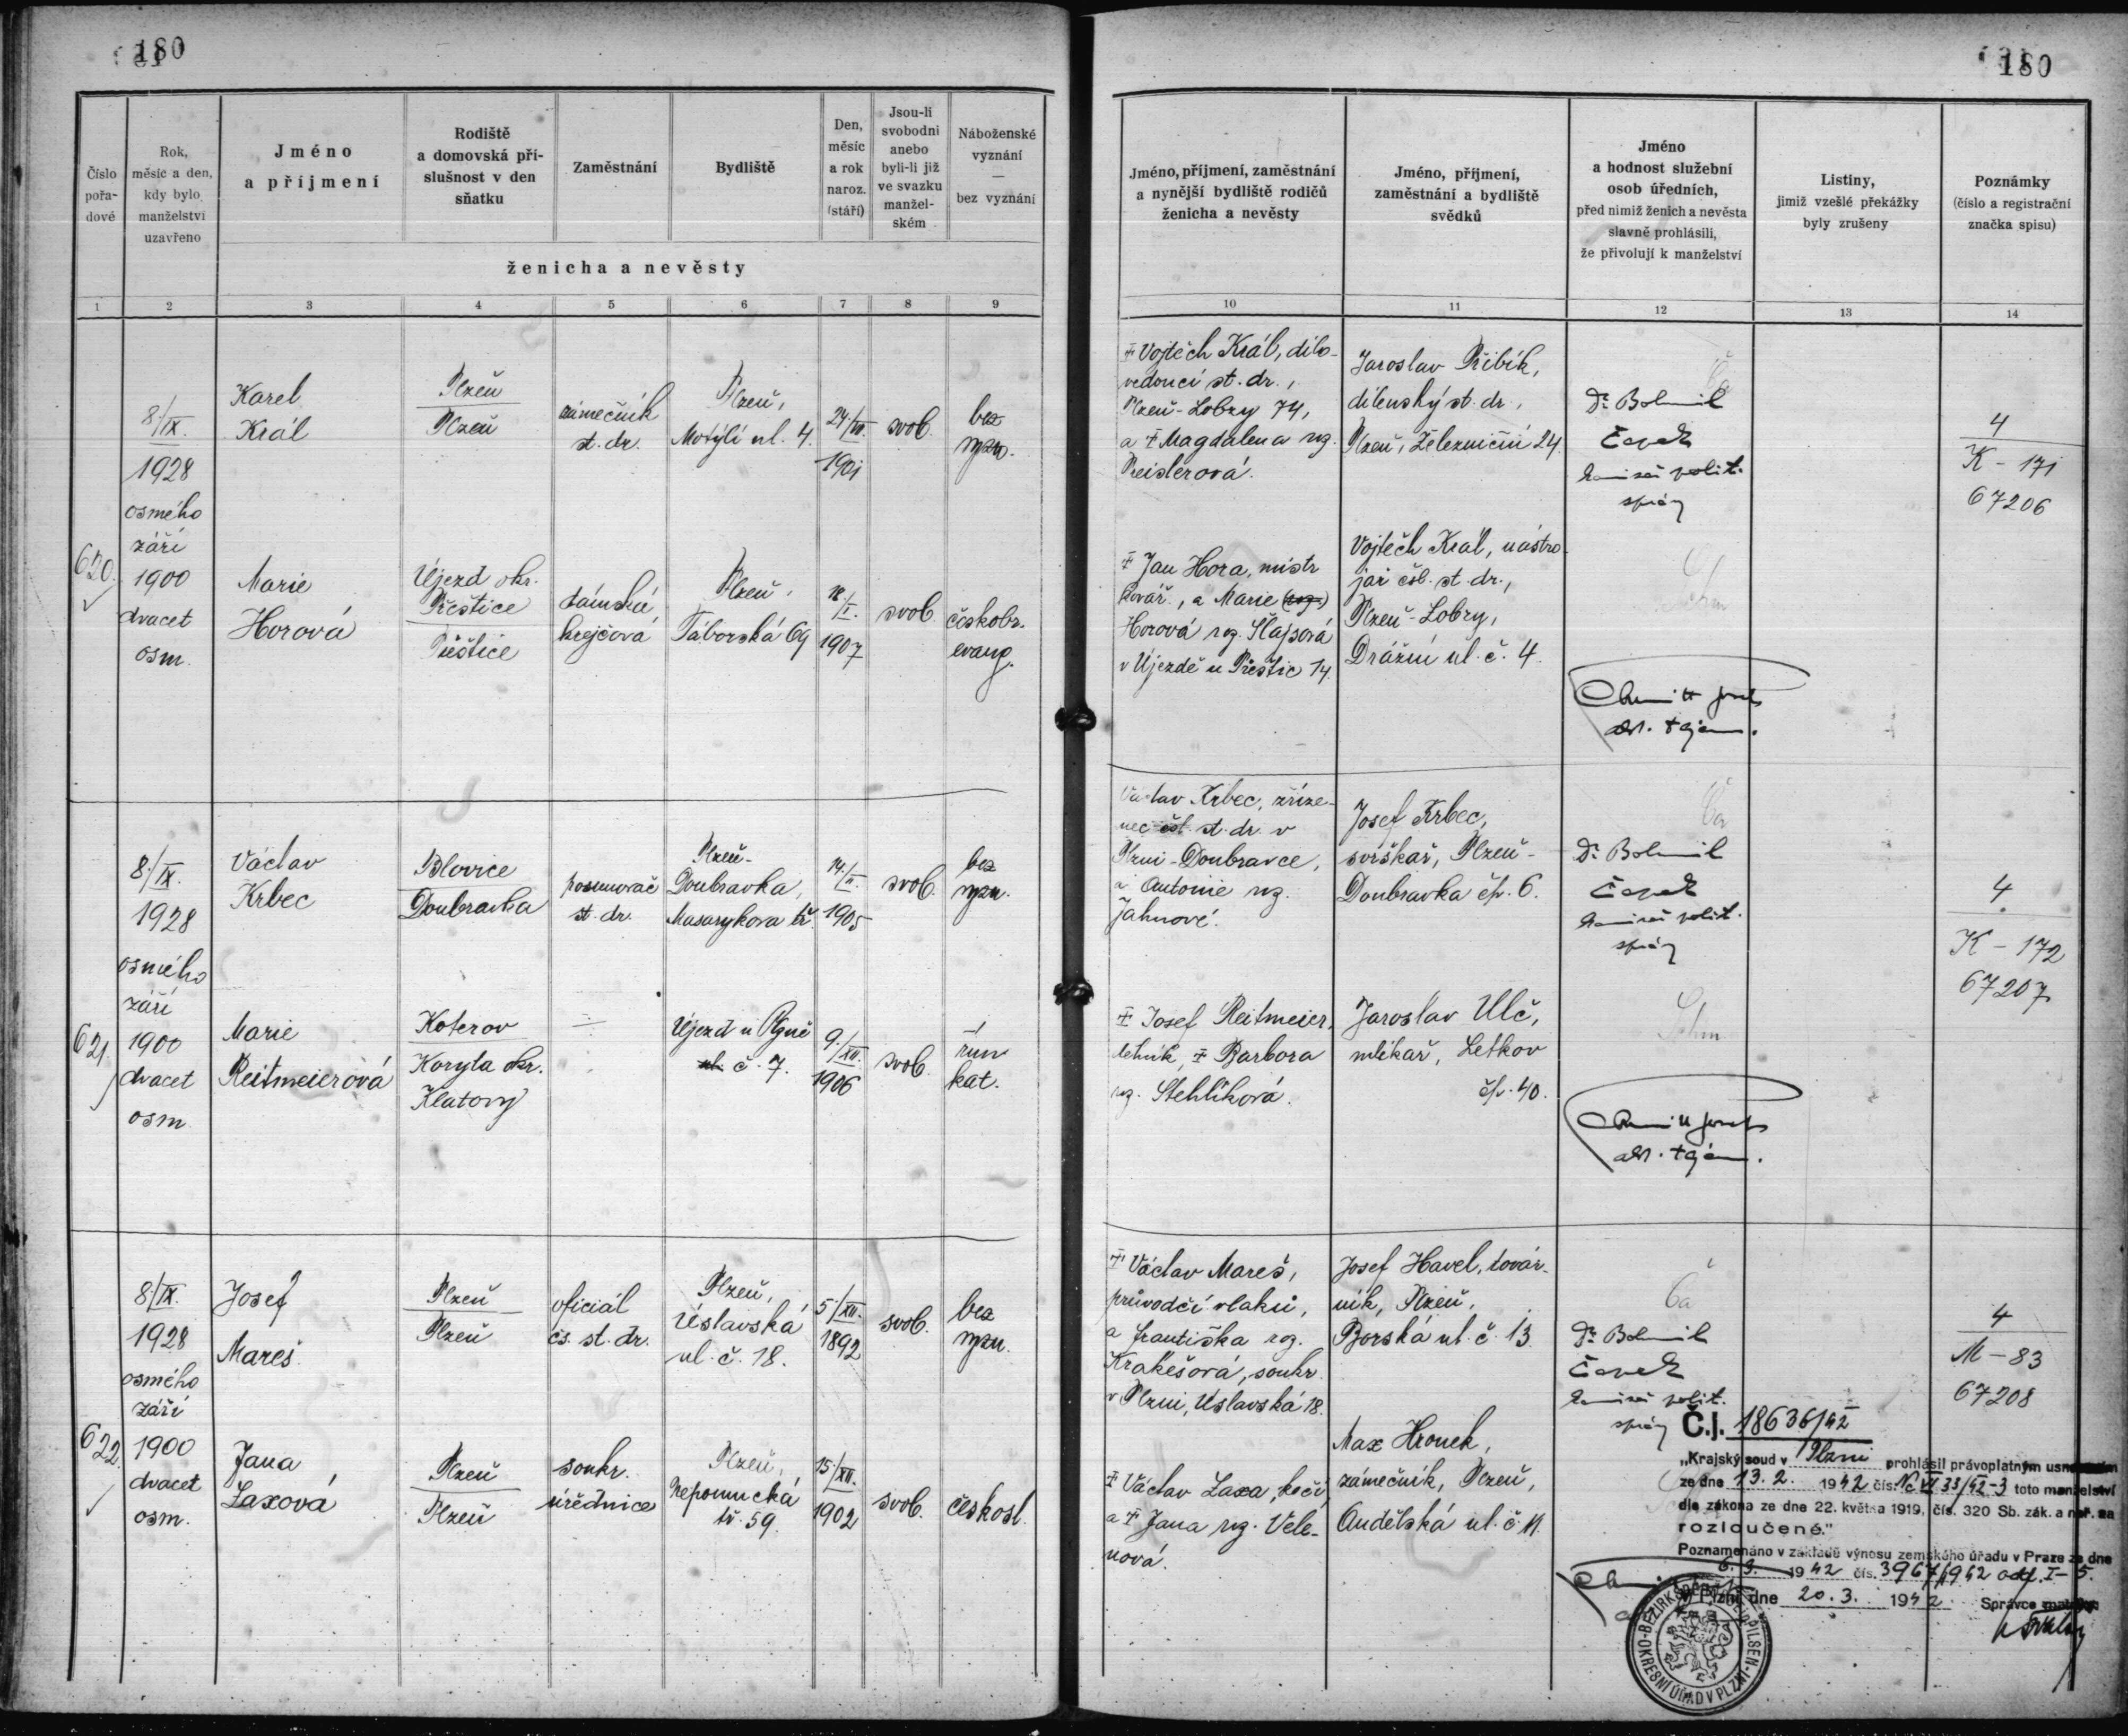 180
180
Číslo pořa-dové
Rok, měsíc a den, kdy bylo manželství uzavřeno
Jméno a příjmení
Rodiště a domovská pří-slušnost v den sňatku
Zaměstnání
Bydliště
Den, měsíc a rok naroz. (stáří)
Jsou-li svobodni anebo byli-li již ve svazku manžel-ském
Náboženské vyznání — bez vyznání
ženicha a nevěsty
1 2 3 4 5 6 7 8 9
Jméno, příjmení, zaměstnání a nynější bydliště rodičů ženicha a nevěsty
Jméno, příjmení, zaměstnání a bydliště svědků
Jméno a hodnost služební osob úředních, před nimiž ženich a nevěsta slavně prohlásili, že přivolují k manželství
Listiny, jimiž vzešlé překážky byly zrušeny
Poznámky (číslo a registrační značka spisu)
10 11 12 13 14
620.
8./IX.
1928
osmého
září
1900
dvacet
osm.
Karel
Král
Plzeň
Plzeň
zámečník
st. dr.
Plzeň,
Motýlí ul. 4.
24./
1901
svob.
bez
vyzn.
Marie
Horová
Újezd okr.
Přeštice
Přeštice
dámská
krejčová
Plzeň,
Táborská 69
18./I.
1907
svob.
českobr.
evang.
Vojtěch Král, dílo-
vedoucí st. dr.,
Plzeň-Lobzy 74,
a Magdalena roz.
Preislerová.
Jan Hora, mistr
kovář., a Marie (roz.)
Horová roz. Šlajsová
v Újezdě u Přeštic 14.
Jaroslav Přibík,
dílenský st. dr.,
Plzeň, Železniční 24.
Vojtěch Král, nástro-
jař čsl. st. dr.,
Plzeň-Lobzy,
Drážní ul. č. 4.
Ča
Dr Bohumil
Čapek
komisař polit.
správy
Schm
4
K - 171
67206
621.
8./IX.
1928
osmého
září
1900
dvacet
osm
Václav
Krbec
Blovice
Doubravka
posunovač
st. dr.
Plzeň-
Doubravka,
Masarykova tř.
14./II.
1905
svob.
bez
vyzn.
Marie
Reitmeierová
Koterov
Koryta okr.
Klatovy
Újezd u Plzně
ul. č. 7.
9./XII.
1906
svob.
řím
kat.
Václav Krbec, zříze-
nec čsl. st. dr. v
Plzni-Doubravce,
a Antonie roz.
Jahnové.
Josef Reitmeier,
dělník, Barbora
roz. Stehlíková.
Josef Krbec,
svrškař, Plzeň-
Doubravka čp. 6.
Jaroslav Ulč,
mlíkař, Letkov
čp. 40.
Ča
Dr Bohumil
Čapek
komisař polit.
správy
Schm
4
K - 172
67207
622.
8./IX.
1928
osmého
září
1900
dvacet
osm.
Josef
Mareš.
Plzeň
Plzeň
oficiál
čs. st. dr.
Plzeň,
Úslavská
ul. č. 18.
5./XII.
1892
svob.
bez
vyzn.
Jana
Laxová
Plzeň
Plzeň
soukr.
úřednice
Plzeň,
Nepomucká
tř. 59.
15./XII.
1902
svob.
českosl.
Václav Mareš,
průvodčí vlaků,
a Františka roz.
Krakešová, soukr.
v Plzni, Úslavská 18.
Václav Laxa, kočí
a Jana roz. Vele-
nová.
Josef Havel, továr-
ník, Plzeň,
Borská ul. č. 13
Max Hronek,
zámečník, Plzeň,
Andělská ul. č. 11.
Ča
Dr Bohumil
Čapek
komisař polit.
správy
4
M - 83
67208
Č.j. 18636/42
„Krajský soud v Plzni prohlásil právoplatným usnesením
ze dne 13. 2. 1942 čís. Nc VI 33/42-3 toto manželství
dle zákona ze dne 22. května 1919, čís. 320 Sb. zák. a nař. za
rozloučené."
Poznamenáno v základě výnosu zemského úřadu v Praze ze dne
6. 3. 1942 čís. 3967/1942 odd. I-5.
V Plzni dne 20. 3. 1942 Správce matriky:
OKRESNÍ ÚŘAD V PLZNI